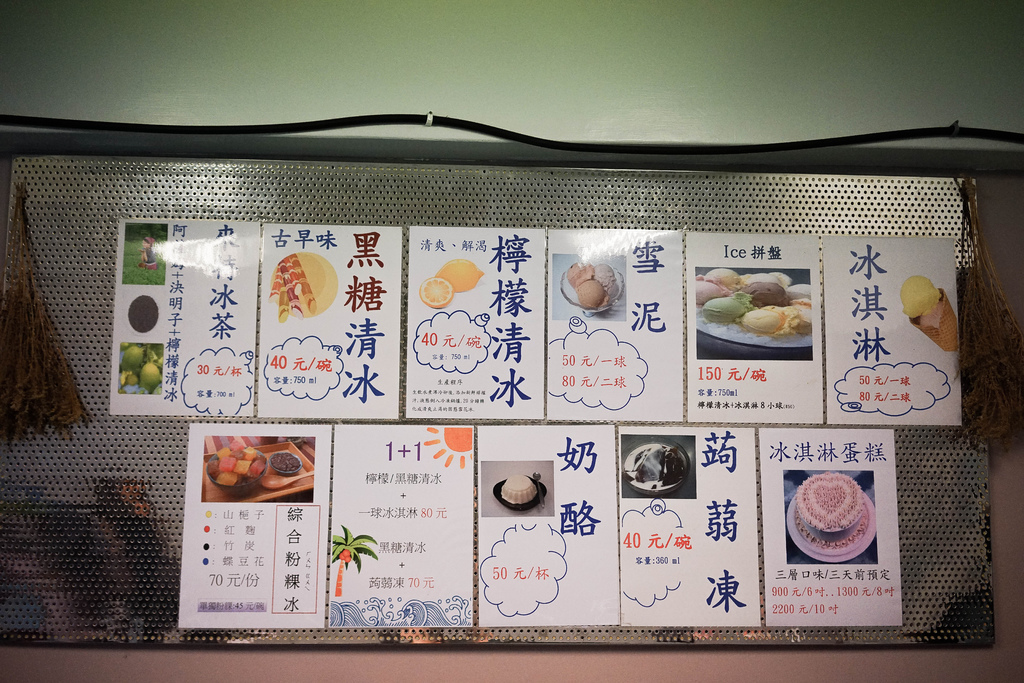 冰茶
30 元/杯
容量:700 ml
決明子+檸檬清冰
古早味
黑糖清冰
40 元/碗
容量:750 ml
清爽、解渴
檸檬清冰
40 元/碗
容量: 750 ml
生產程序
雪泥
50 元/一球
80 元/二球
Ice 拼盤
150 元/碗
容量:750ml
檸檬清冰+冰淇淋 8 小球
冰淇淋
50 元/一球
80 元/二球
綜合粉粿冰
:山梔子
:紅麴
:竹炭
:蝶豆花
70 元/份
單獨粉粿:45 元/碗
1+1
檸檬/黑糖清冰
+
一球冰淇淋 80 元
黑糖清冰
+
蒟蒻凍 70 元
奶酪
50 元/杯
蒟蒻凍
40 元/碗
容量:360 ml
冰淇淋蛋糕
三層口味/三天前預定
900 元/6 吋..1300 元/8 吋
2200 元/10 吋